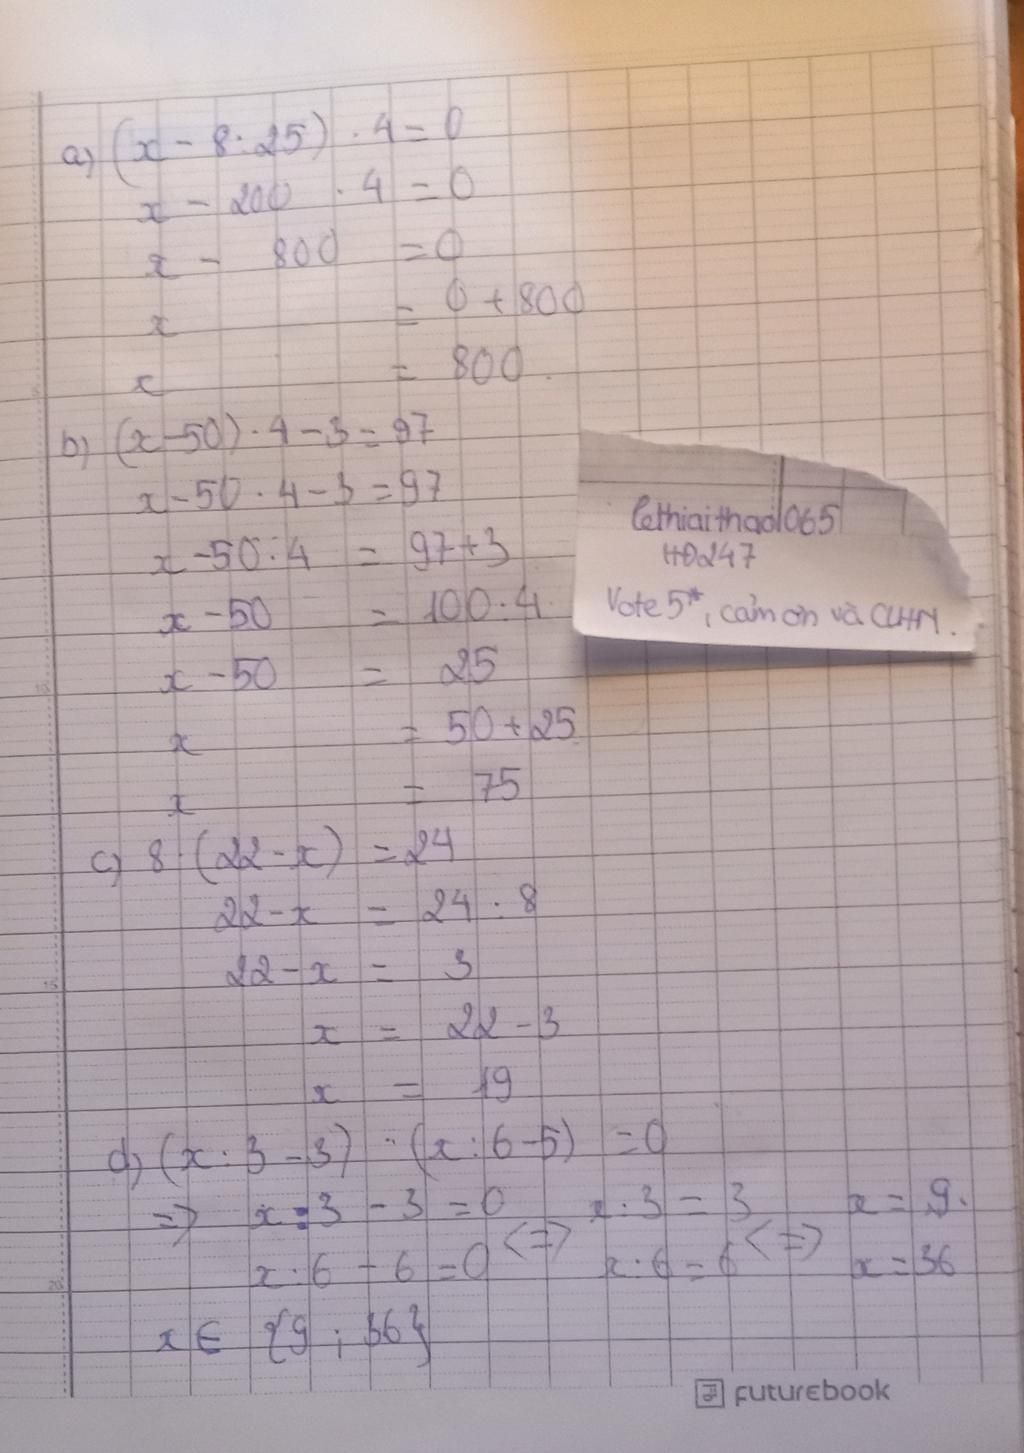 a) (x - 8 . 25) . 4 = 0
x - 200 . 4 = 0
x - 800 = 0
x = 0 + 800
x = 800.
b) (x - 50) . 4 - 3 = 97
x - 50 . 4 - 3 = 97
x - 50 : 4 = 97 + 3
x - 50 = 100 . 4
x - 50 = 25
x = 50 + 25
x = 75
c) 8 . (22 - x) = 24
22 - x = 24 : 8
22 - x = 3
x = 22 - 3
x = 19
d) (x : 3 - 3) . (x : 6 - 5) = 0
=> x : 3 - 3 = 0 <=> x : 3 = 3 <=> x = 9.
x : 6 - 6 = 0 x : 6 = 6 x = 36
x ∈ {9 ; 36}
lethiaithao1065
HĐ247
Vote 5*, cảm ơn và CLHN.
futurebook